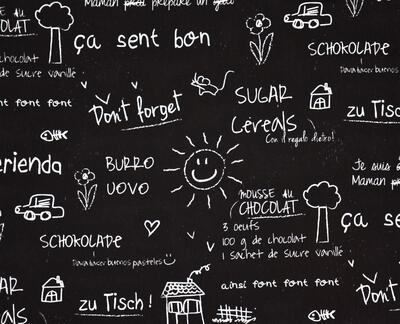 Maman prépare un
MOUSSE AU
CHOCOLAT
chocolat
de sucre vanille
ça sent bon
SCHOKOLADE
Para hacer buenos
font font font
Don't forget
SUGAR
Cereals
Con il regalo dietro!
zu Tisch
erienda
BURRO
UOVO
Je suis
Maman
MOUSSE AU
CHOCOLAT
3 oeufs
100 g de chocolat
1 sachet de sucre vanille
ça se
SCHOKOLADE
Para hacer buenos pasteles
zu Tisch!
ainsi font font font
Don't
AR
als